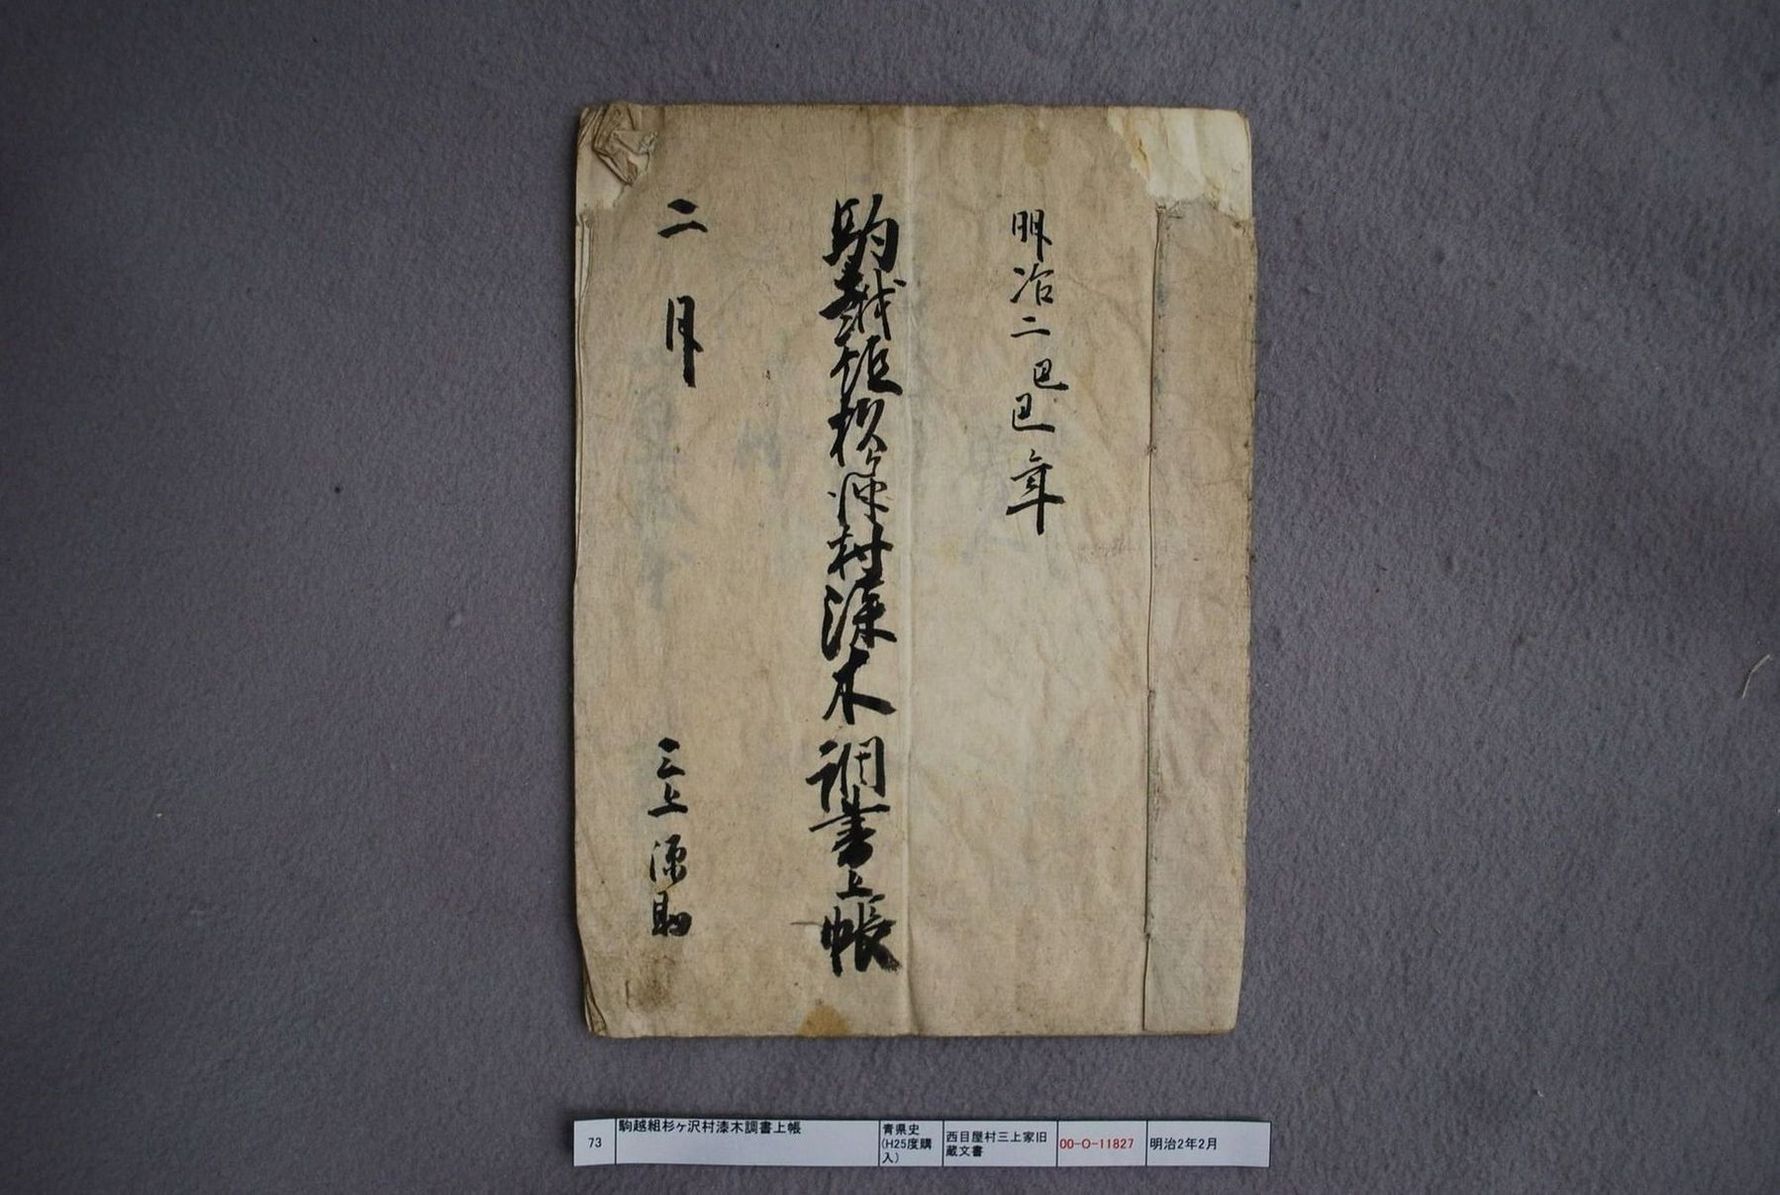 明治二己巳年
駒越組杦ヶ沢村漆木調書上帳
二月
三上源助
73
駒越組杉ヶ沢村漆木調書上帳
青県史
(H25度購
入)
西目屋村三上家旧
蔵文書
00-O-11827
明治2年2月